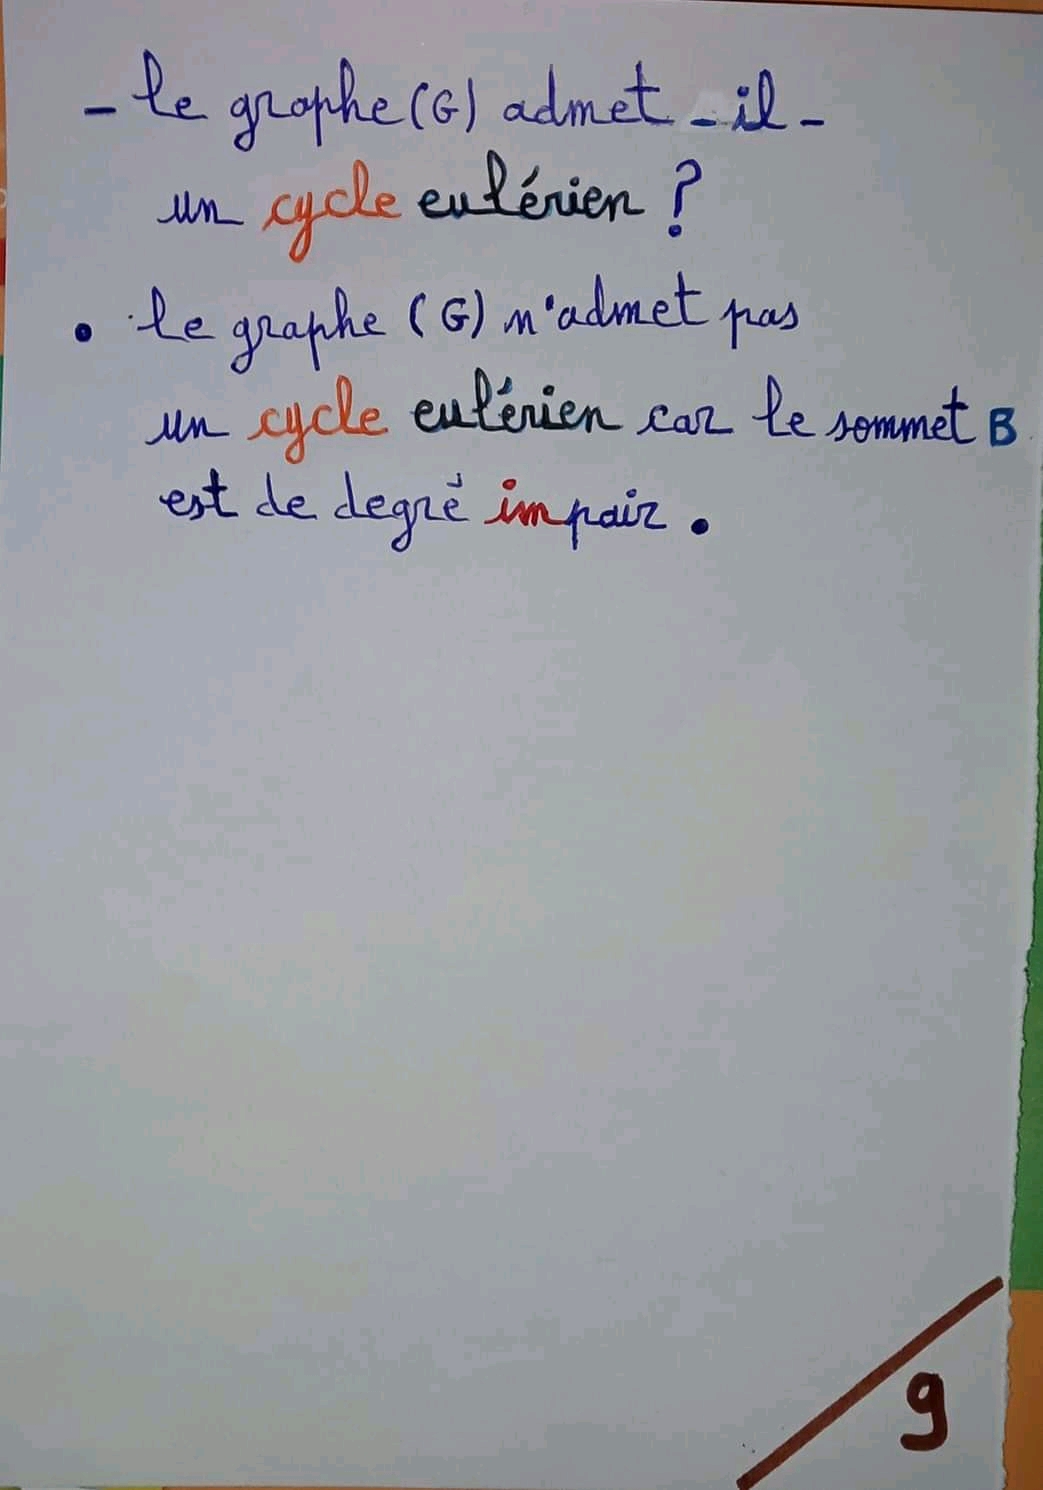 - le graphe (G) admet - il -
un cycle eulérien ?
• le graphe (G) n'admet pas
un cycle eulérien car le sommet B
est de degré impair .
9